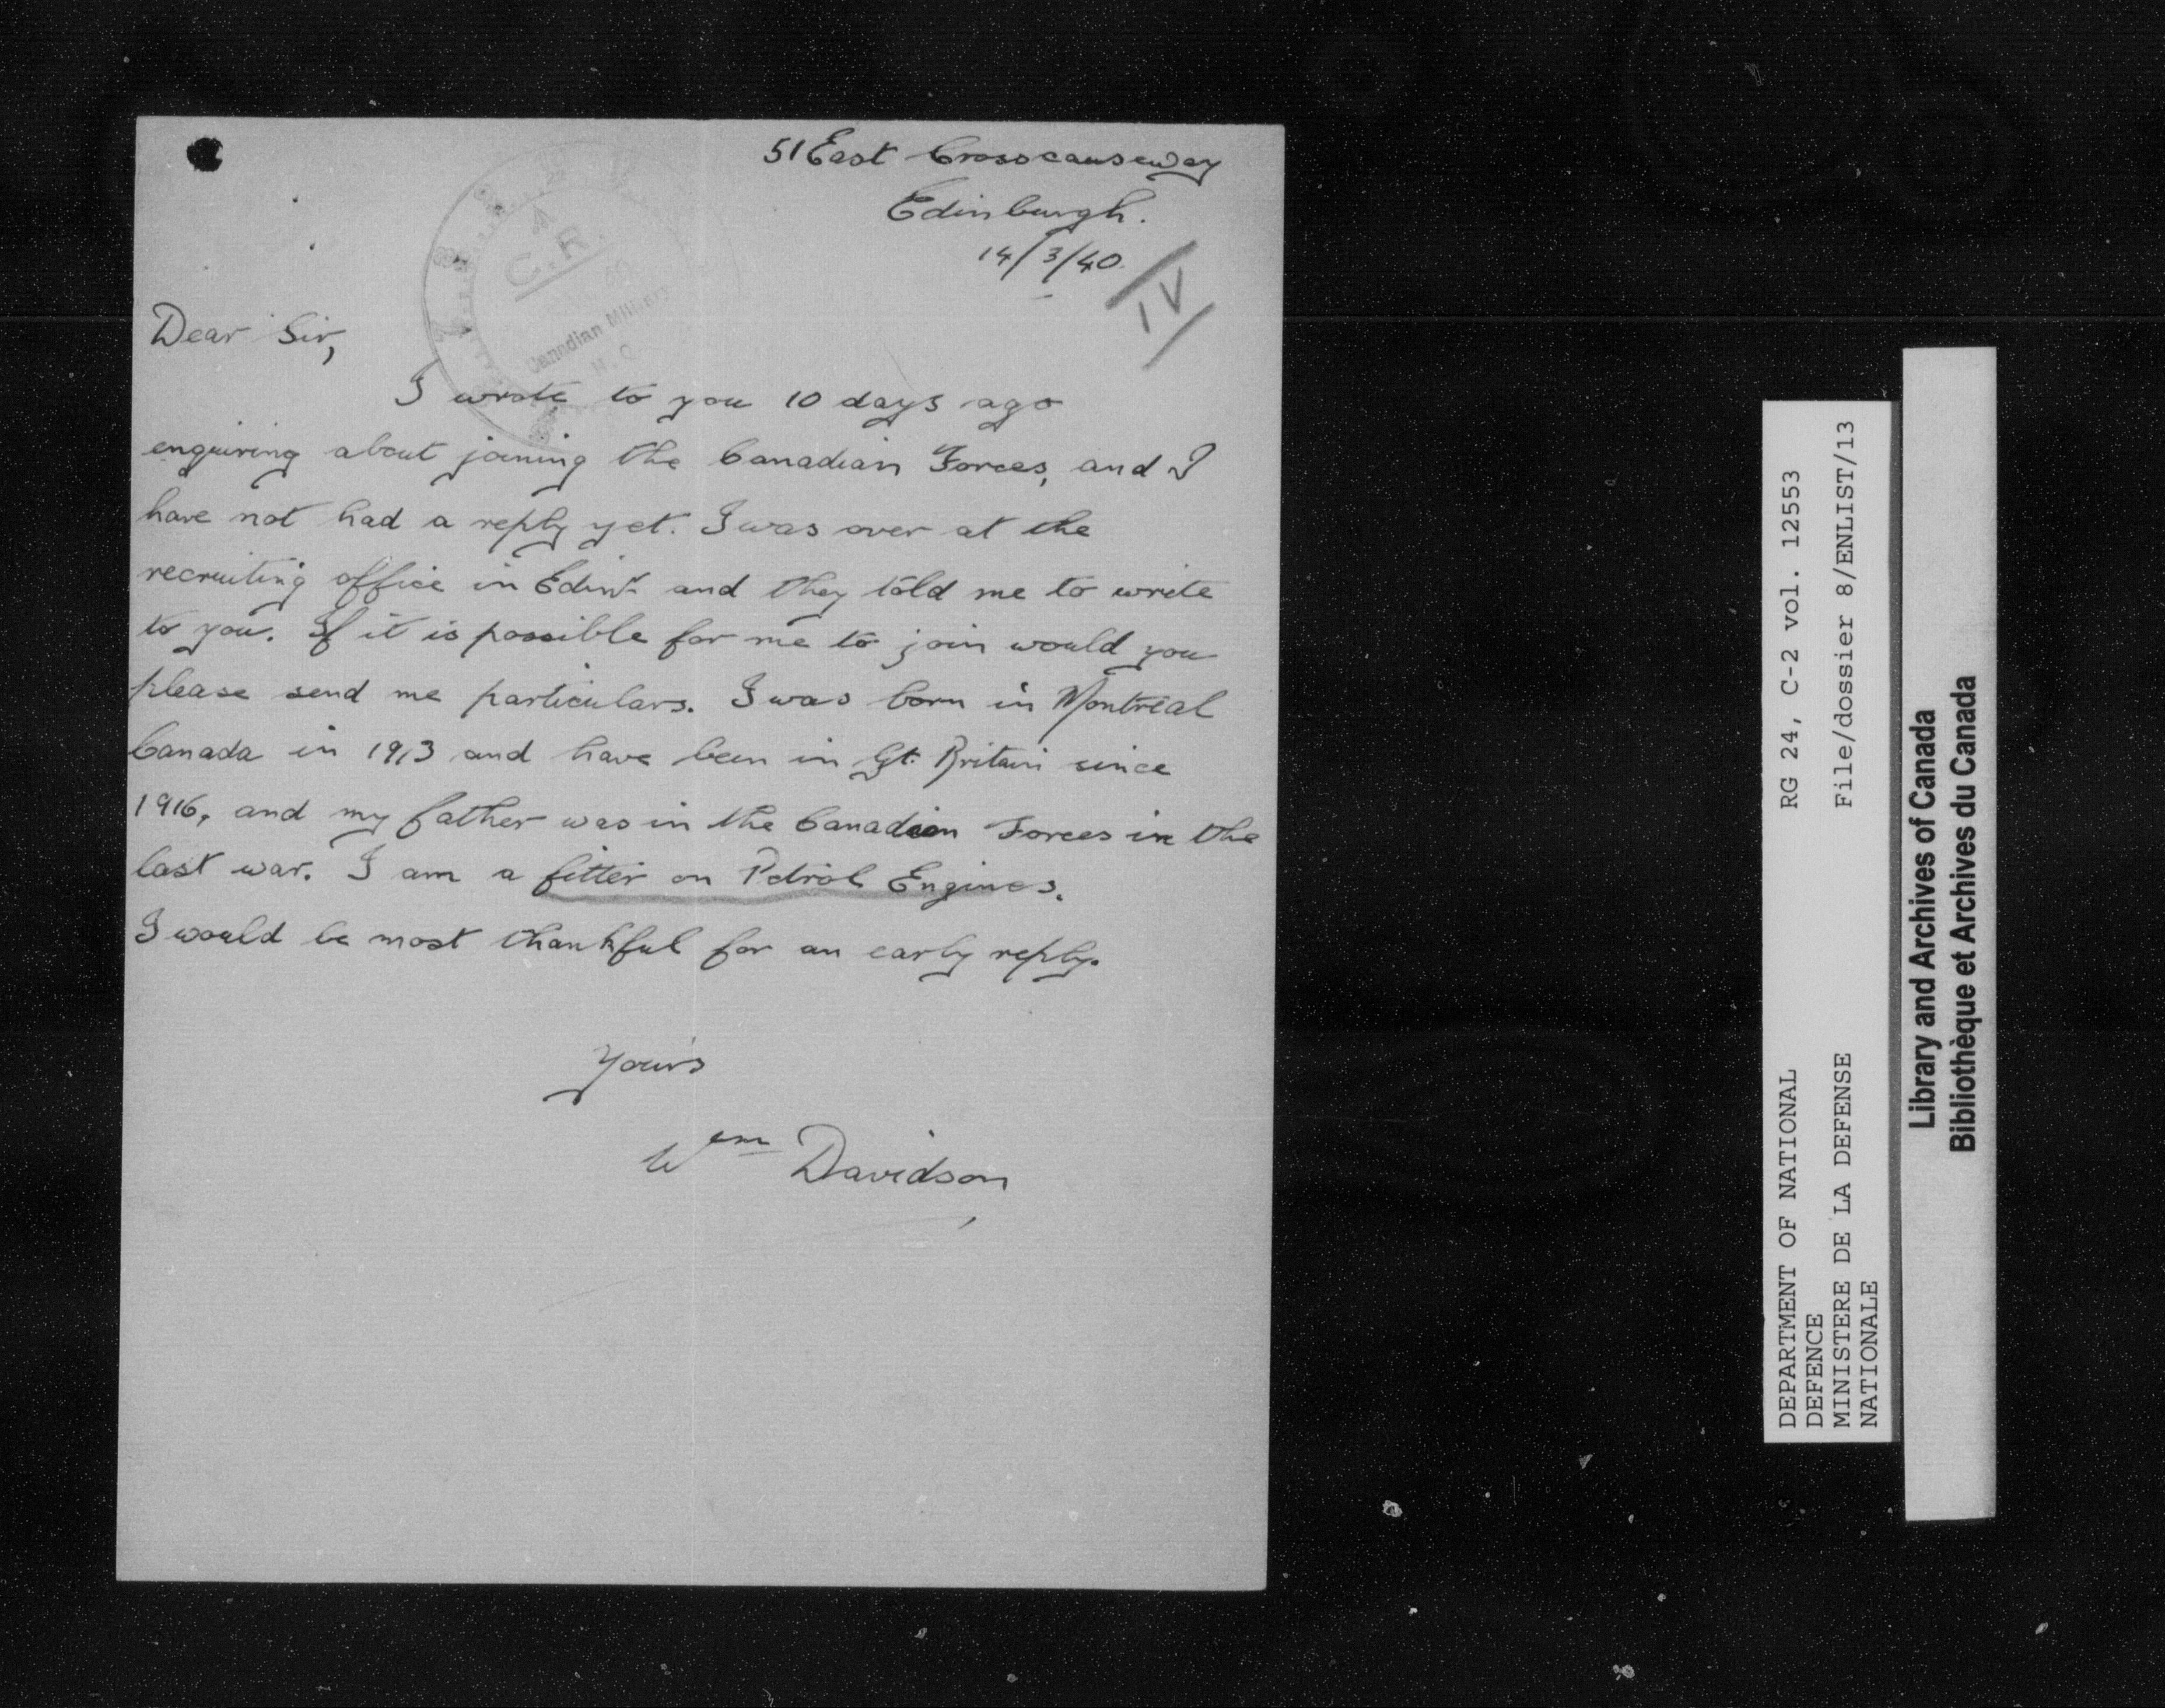 51 East Crosscauseway
Edinburgh.
14/3/40.
IV
C.R.
Canadian Military
H.Q.
Dear Sir,
I wrote to you 10 days ago
enquiring about joining the Canadian Forces, and I
have not had a reply yet. I was over at the
recruiting office in Edinr and they told me to write
to you. If it is possible for me to join would you
please send me particulars. I was born in Montreal
Canada in 1913 and have been in Gt. Britain since
1916, and my father was in the Canadian Forces in the
last war. I am a fitter on Petrol Engines.
I would be most thankful for an early reply.
Yours
Wm Davidson
DEPARTMENT OF NATIONAL RG 24, C-2 vol. 12553
DEFENCE
MINISTERE DE LA DEFENSE File/dossier 8/ENLIST/13
NATIONALE
Library and Archives of Canada
Bibliothèque et Archives du Canada